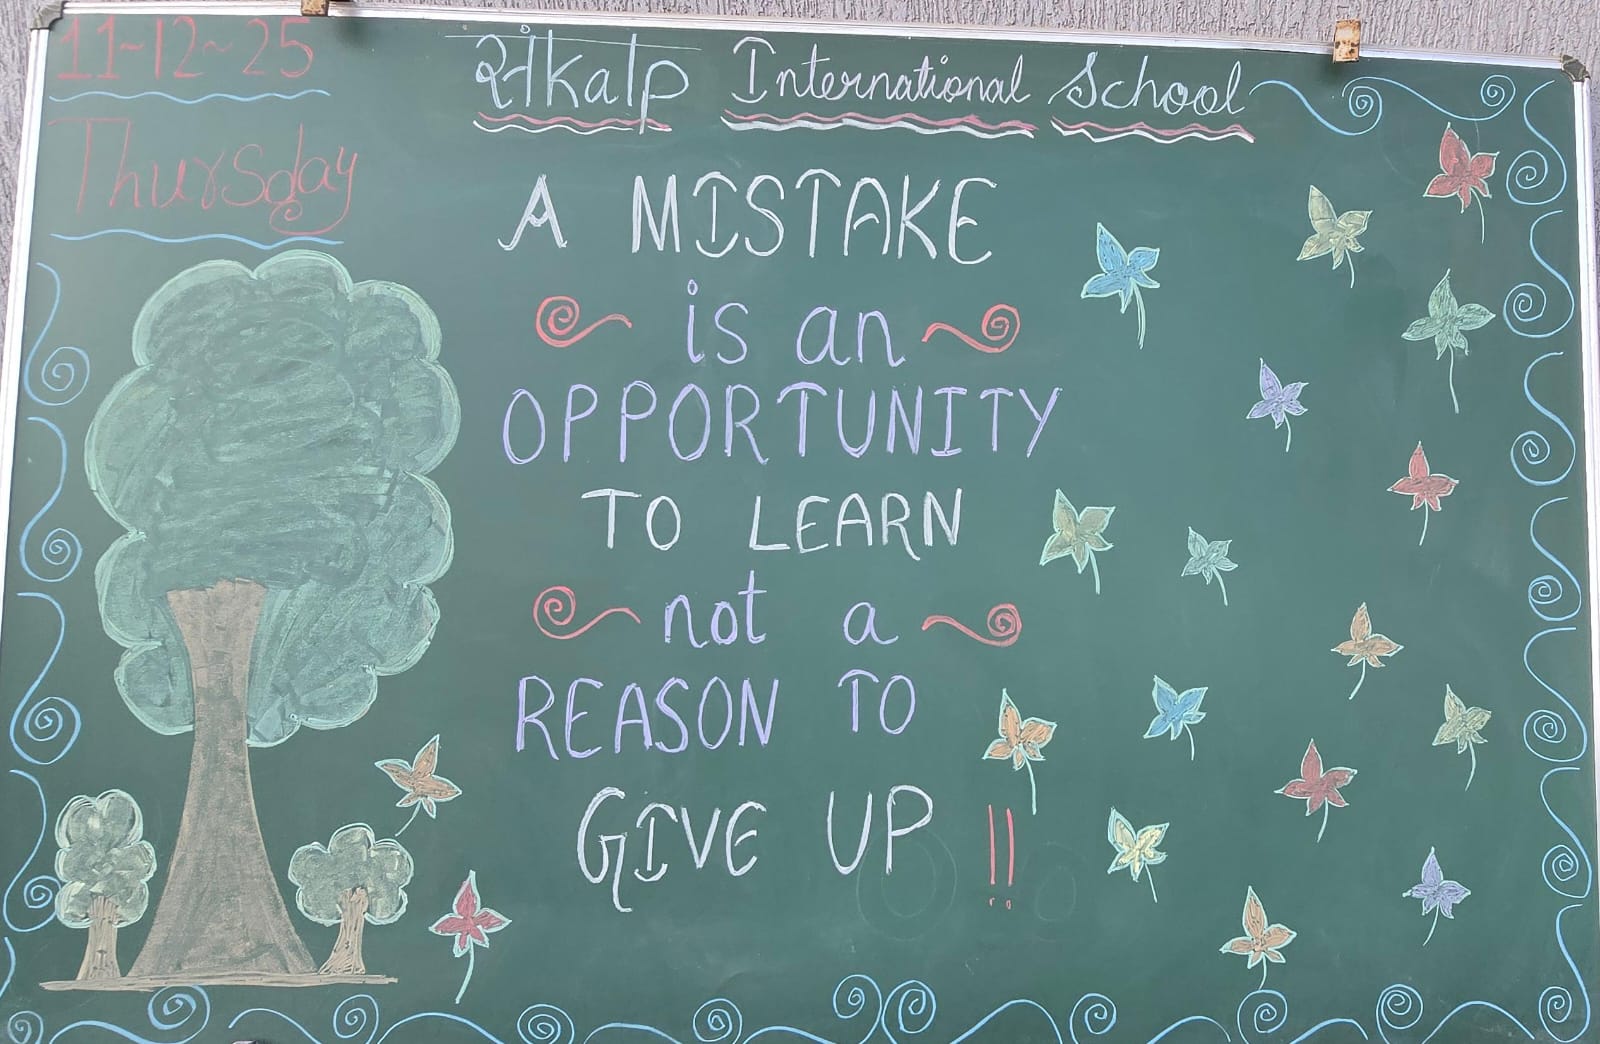 11-12-25
Thursday
संkalp International School
A MISTAKE
is an
OPPORTUNITY
TO LEARN
not a
REASON TO
GIVE UP !!